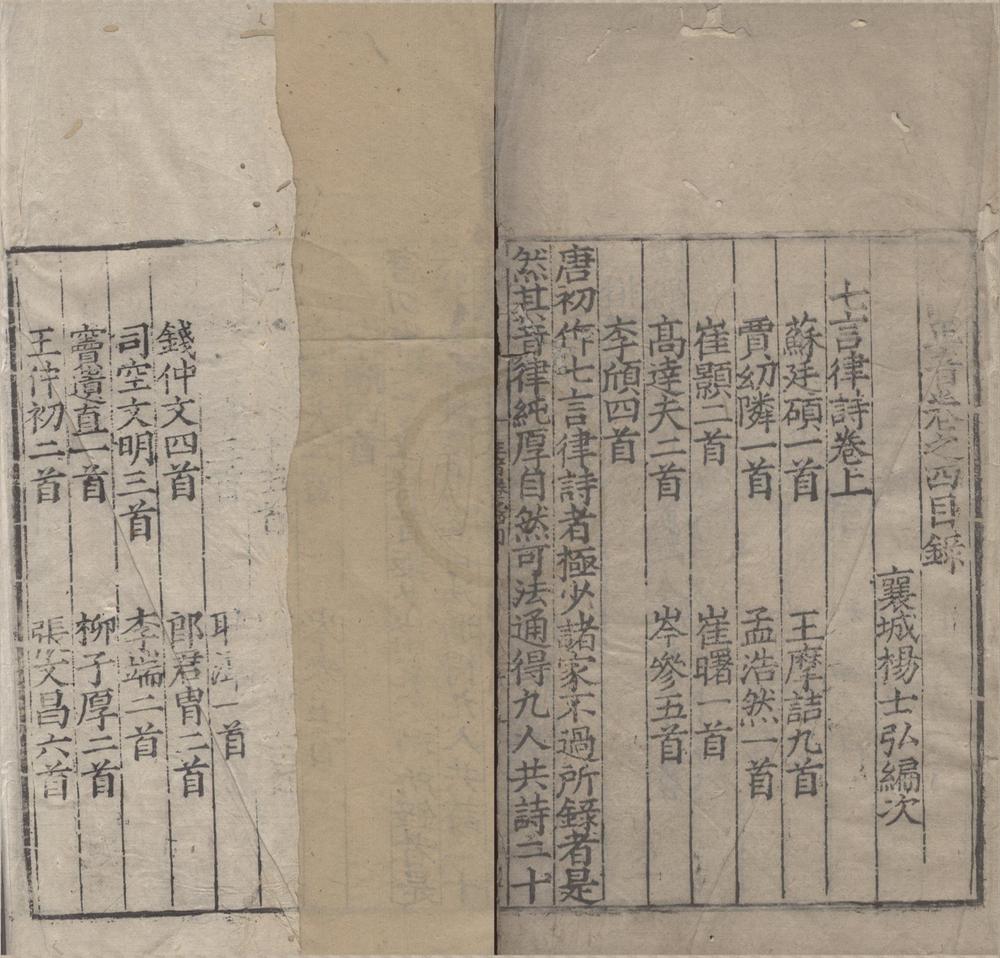 正音卷之四目錄
襄城楊士弘編次
七言律詩卷上
蘇廷碩一首 王摩詰九首
賈幼隣一首 孟浩然一首
崔顥二首 崔曙一首
高達夫二首 岑參五首
李頎四首
唐初作七言律詩者極少諸家不過所録者是
然其音律純厚自然可法通得九人共詩二十
一首
錢仲文四首 郎君胄二首
司空文明三首 李端二首
竇遺直一首 柳子厚二首
王仲初二首 張文昌六首